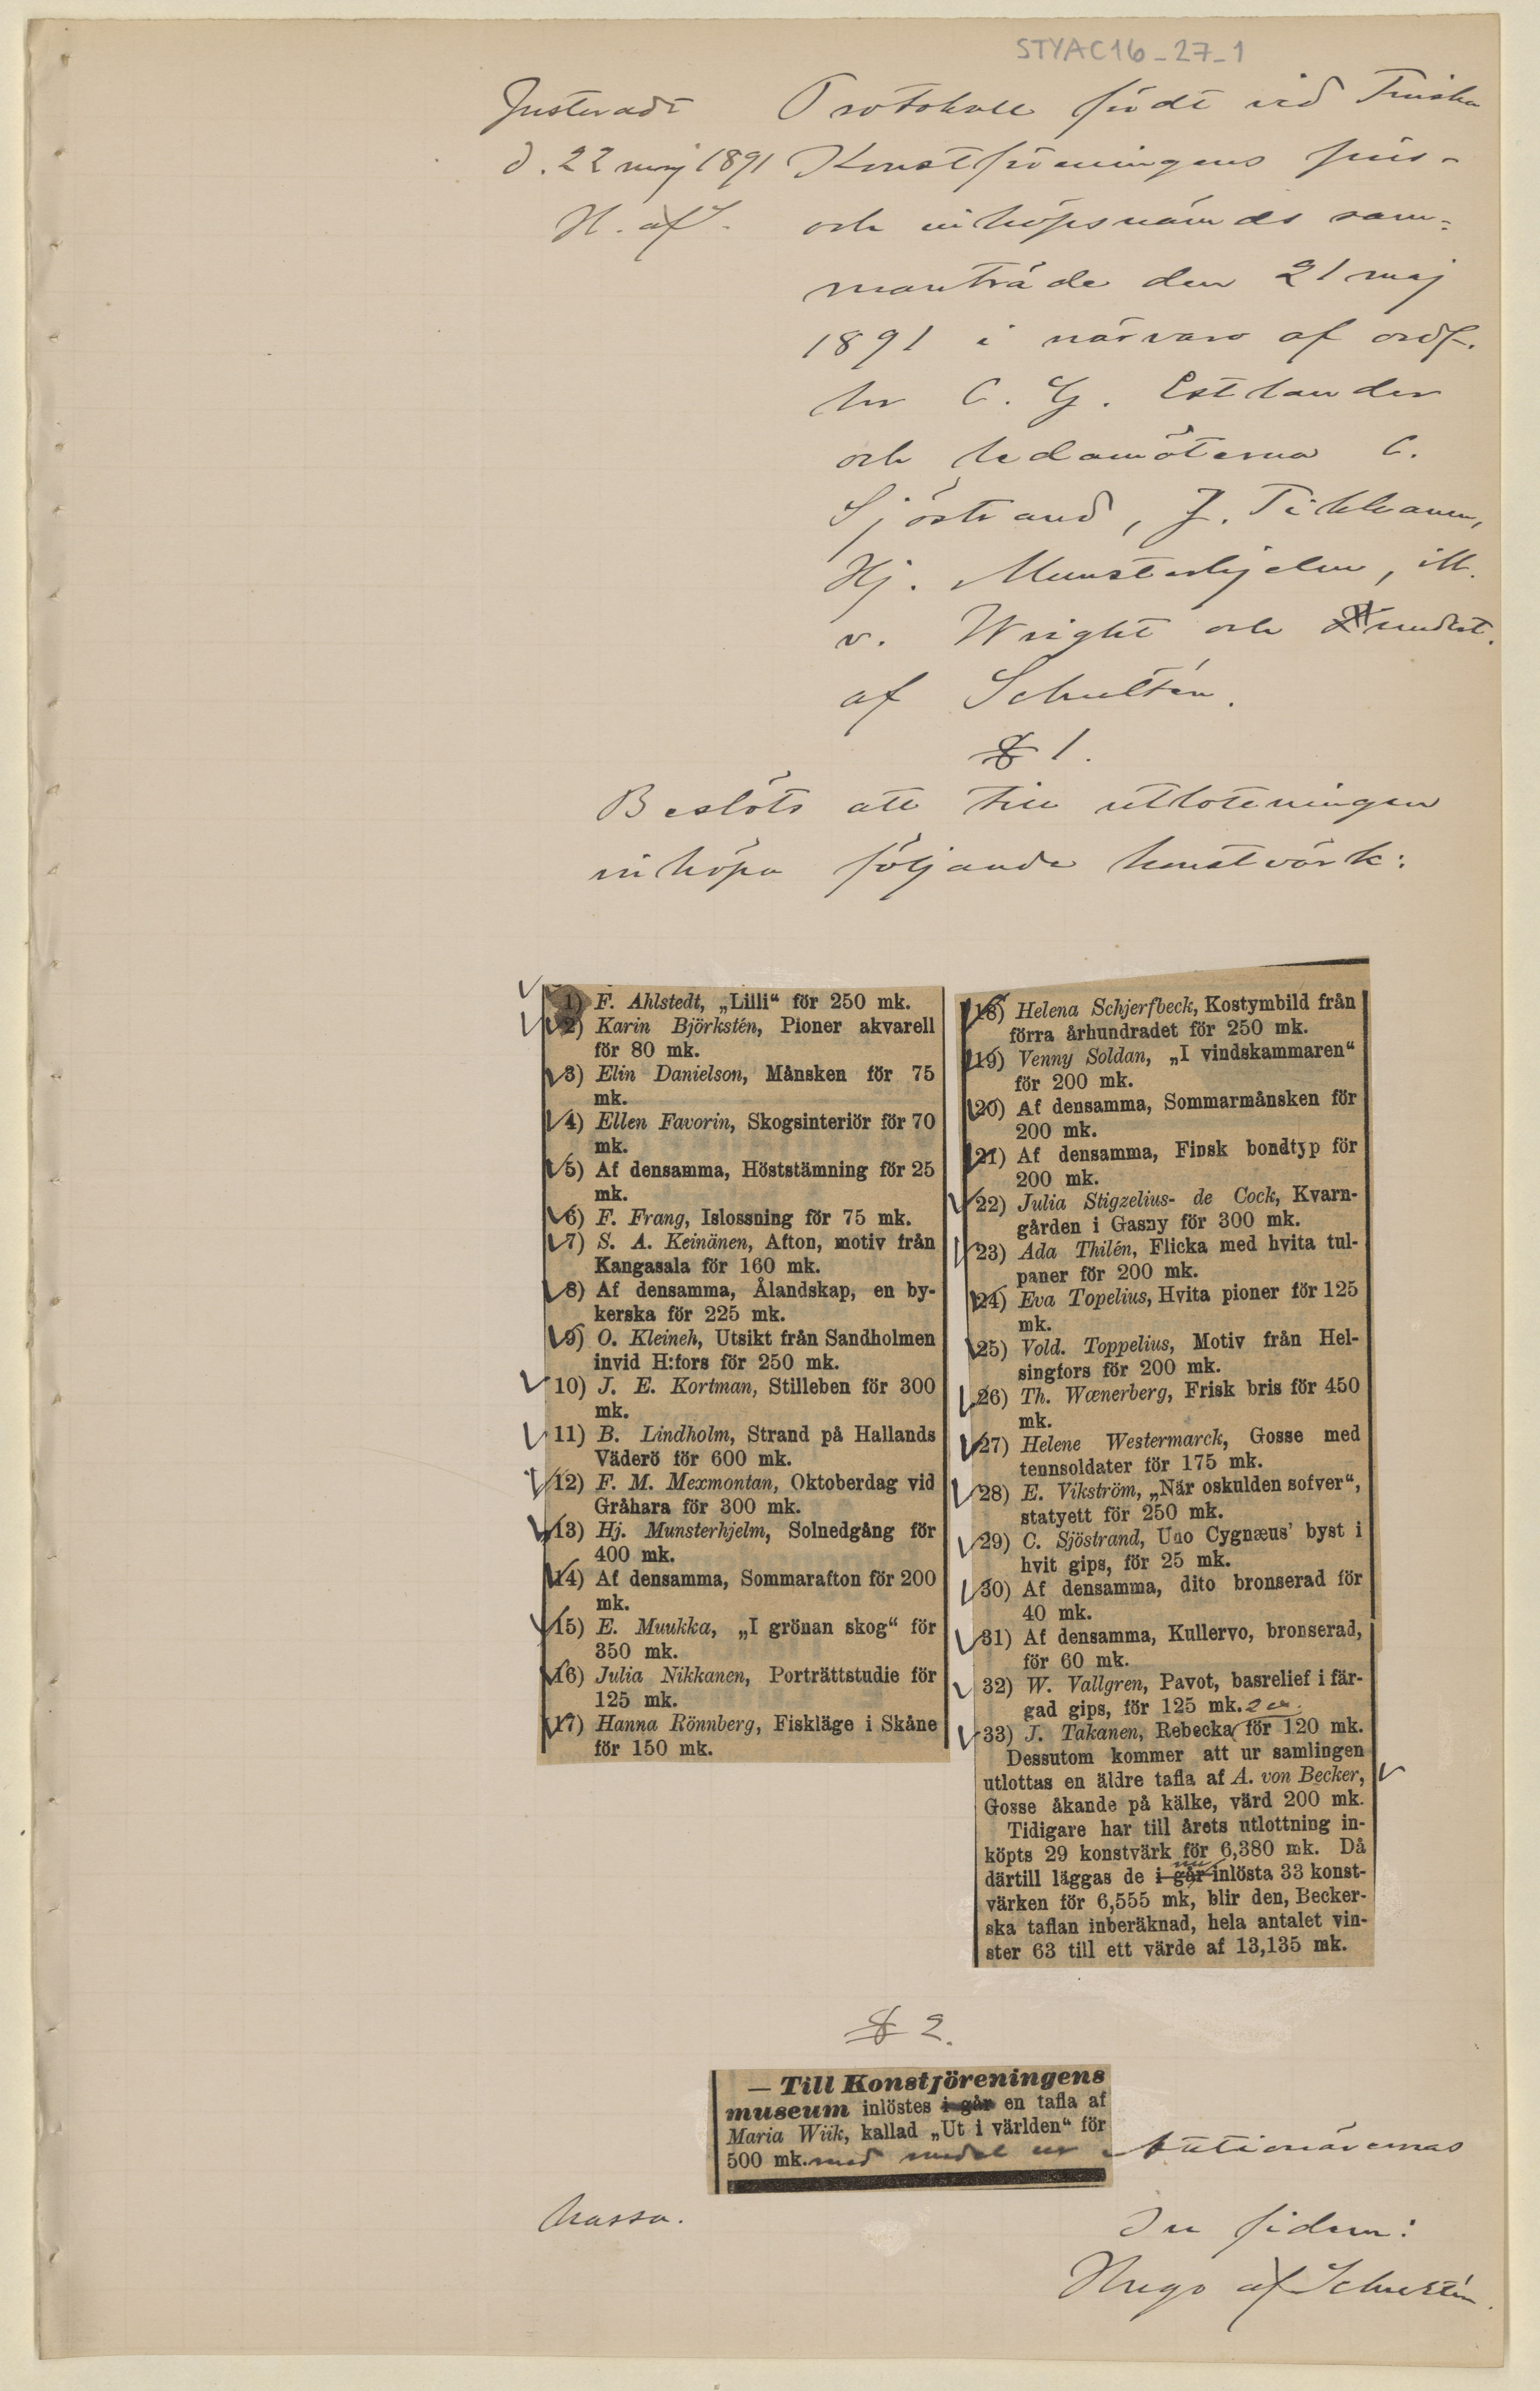 STYAC16_27_1
Justeradt
d. 22 maj 1891
H. af S.
Protokoll fördt vid Finska
Konstföreningens pris-
och inköpsnämds sam=
manträde den 21 maj
1891 i närvaro af ordf.
hr C. G. Estlander
och ledamöterna C.
Sjöstrand, J. Tikkanen,
Hj. Munsterhjelm,
v. Wright och
af Schultén.
§ 1.
Beslöts att till utlotningen
inköpa följande konstvärk:
1) F. Ahlstedt, „Lilli“ för 250 mk.
2) Karin Björkstén, Pioner akvarell
för 80 mk.
3) Elin Danielson, Månsken för 75
mk.
4) Ellen Favorin, Skogsinteriör för 70
mk.
5) Af densamma, Höststämning för 25
mk.
6) F. Frang, Islossning för 75 mk.
7) S. A. Keinänen, Afton, motiv från
Kangasala för 160 mk.
8) Af densamma, Ålandskap, en by-
kerska för 225 mk.
9) O. Kleineh, Utsikt från Sandholmen
invid H:fors för 250 mk.
10) J. E. Kortman, Stilleben för 300
mk.
11) B. Lindholm, Strand på Hallands
Väderö för 600 mk.
12) F. M. Mexmontan, Oktoberdag vid
Gråhara för 300 mk.
13) Hj. Munsterhjelm, Solnedgång för
400 mk.
14) Af densamma, Sommarafton för 200
mk.
15) E. Muukka, „I grönan skog“ för
350 mk.
16) Julia Nikkanen, Porträttstudie för
125 mk.
17) Hanna Rönnberg, Fiskläge i Skåne
för 150 mk.
18) Helena Schjerfbeck, Kostymbild från
förra århundradet för 250 mk.
19) Venny Soldan, „I vindskammaren“
för 200 mk.
20) Af densamma, Sommarmånsken för
200 mk.
21) Af densamma, Finsk bondtyp för
200 mk.
22) Julia Stigzelius- de Cock, Kvarn-
gården i Gasny för 300 mk.
23) Ada Thilén, Flicka med hvita tul-
paner för 200 mk.
24) Eva Topelius, Hvita pioner för 125
mk.
25) Vold. Toppelius, Motiv från Hel-
singfors för 200 mk.
26) Th. Wænerberg, Frisk bris för 450
mk.
27) Helene Westermarck, Gosse med
tennsoldater för 175 mk.
28) E. Vikström, „När oskulden sofver“,
statyett för 250 mk.
29) C. Sjöstrand, Uno Cygnæus' byst i
hvit gips, för 25 mk.
30) Af densamma, dito bronserad för
40 mk.
31) Af densamma, Kullervo, bronserad,
för 60 mk.
32) W. Vallgren, Pavot, basrelief i fär-
gad gips, för 125 mk.
33) J. Takanen, Rebecka för 120 mk.
Dessutom kommer att ur samlingen
utlottas en äldre tafla af A. von Becker,
Gosse åkande på kälke, värd 200 mk.
Tidigare har till årets utlottning in-
köpts 29 konstvärk för 6,380 mk. Då
nu
därtill läggas de i går inlösta 33 konst-
värken för 6,555 mk, blir den, Becker-
ska taflan inberäknad, hela antalet vin-
ster 63 till ett värde af 13,135 mk.
§ 2.
— Till Konstföreningens
museum inlöstes i går en tafla af
Maria Wiik, kallad „Ut i världen“ för
500 mk. med medel ur Aktionärernas
kassa.
In fidem:
Hugo af Schultén.